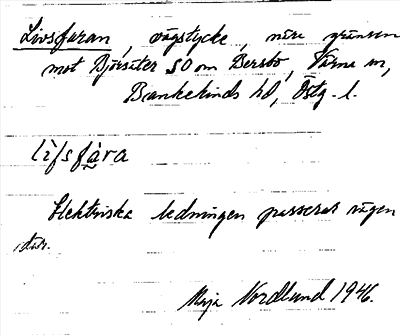 Livsfaran, vägstycke, nära gränsen
mot Björsäter SO om Bersbo, Värna sn,
Bankekinds hd, Östg. l.
lifsfara
Elektriska ledningen passerar vägen
där.
Maja Nordlund 1946.